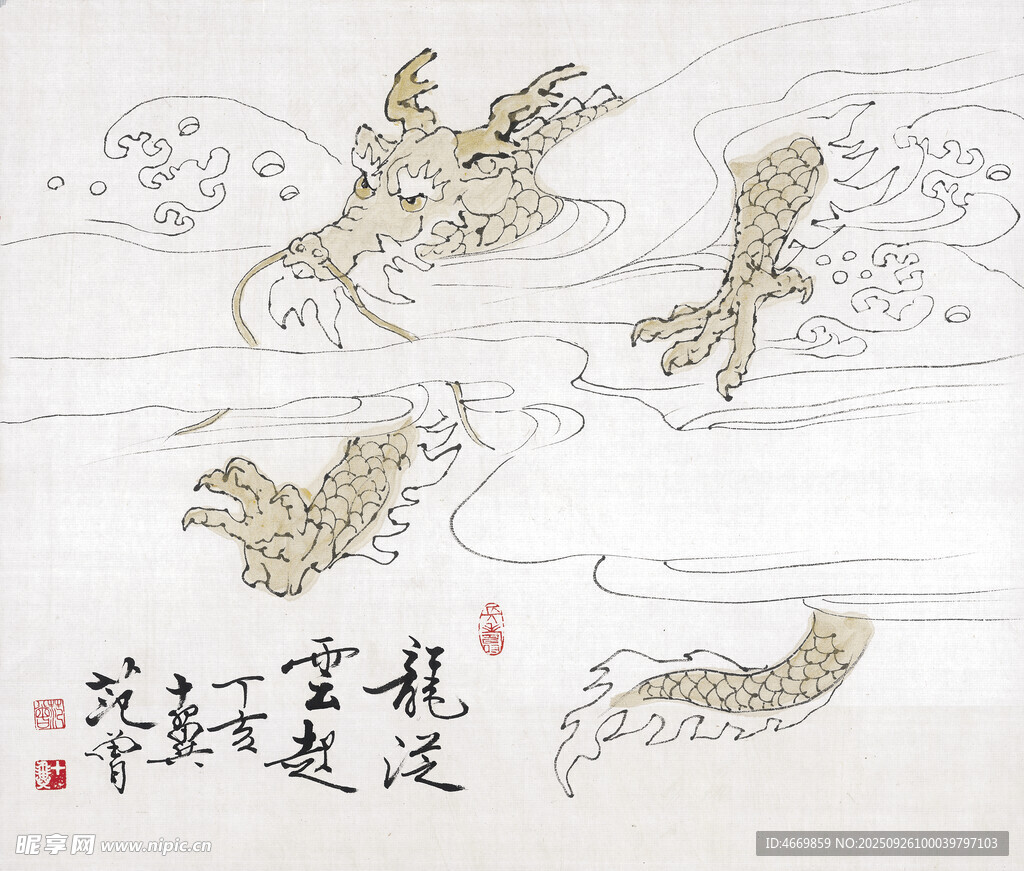 龍從
雲起
丁亥
十翼
范曾
范曾
十翼
昵享网 www.nipic.cn
ID:4669859 NO:20250926100039797103